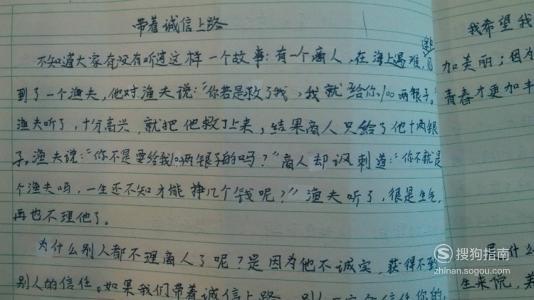 带着诚信上路
不知道大家有没有听过这样一个故事:有一个商人,在海上遇难,遇
到了一个渔夫,他对渔夫说:"你若是救了我,我就给你100两银子。"
渔夫听了,十分高兴,就把他救了上来,结果商人只给了他十两银
子,渔夫说:"你不是要给我100两银子的吗?"商人却讽刺道:"你不就是
个渔夫吗,一生还不知才能挣几个钱呢?"渔夫听了,很是生气,
再也不理他了。
为什么别人都不理商人了呢?是因为他不诚实,获得不到
别人的信任。如果我们带着诚信上路,别人一定会信任你的
我希望我
加美丽;因为
青春才更加丰
是什么
生来慌,若
搜狗指南
zhinan.sogou.com